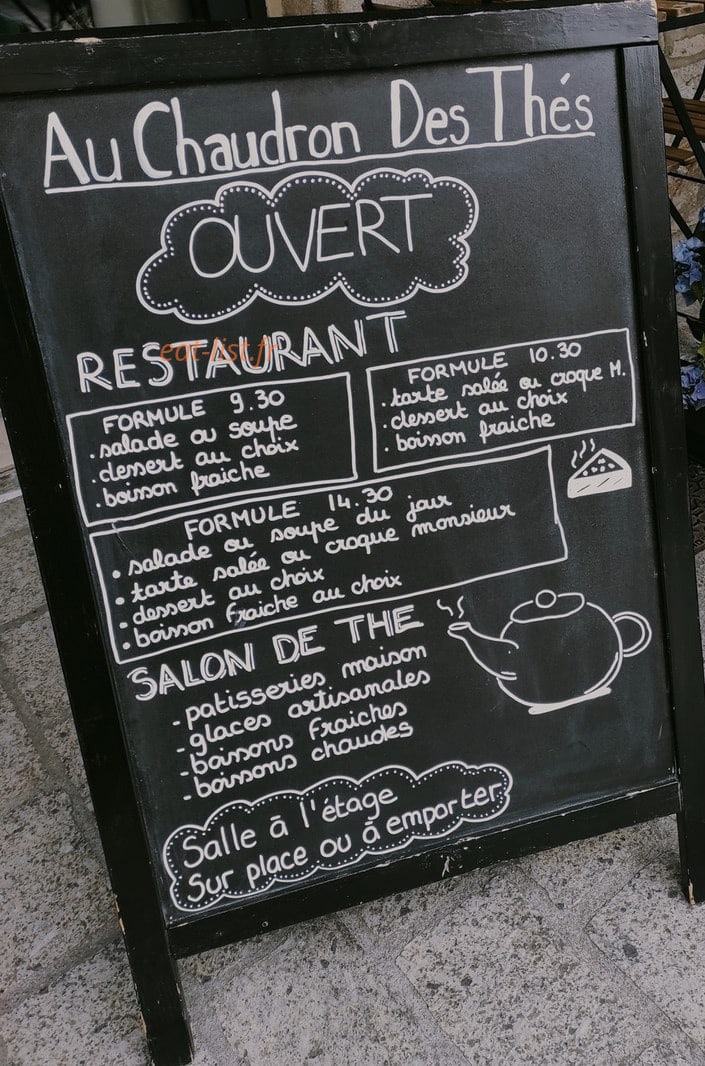 Au Chaudron Des Thés
OUVERT
RESTAURANT
eat-list.fr
FORMULE 9.30
. salade ou soupe
. dessert au choix
. boisson fraiche
FORMULE 10.30
. tarte salée ou croque M.
. dessert au choix
. boisson fraiche
FORMULE 14.30
• salade ou soupe du jour
• tarte salée ou croque monsieur
• dessert au choix
• boisson fraiche au choix
SALON DE THE
- patisseries maison
- glaces artisanales
- boissons fraiches
- boissons chaudes
Salle à l'étage
Sur place ou à emporter